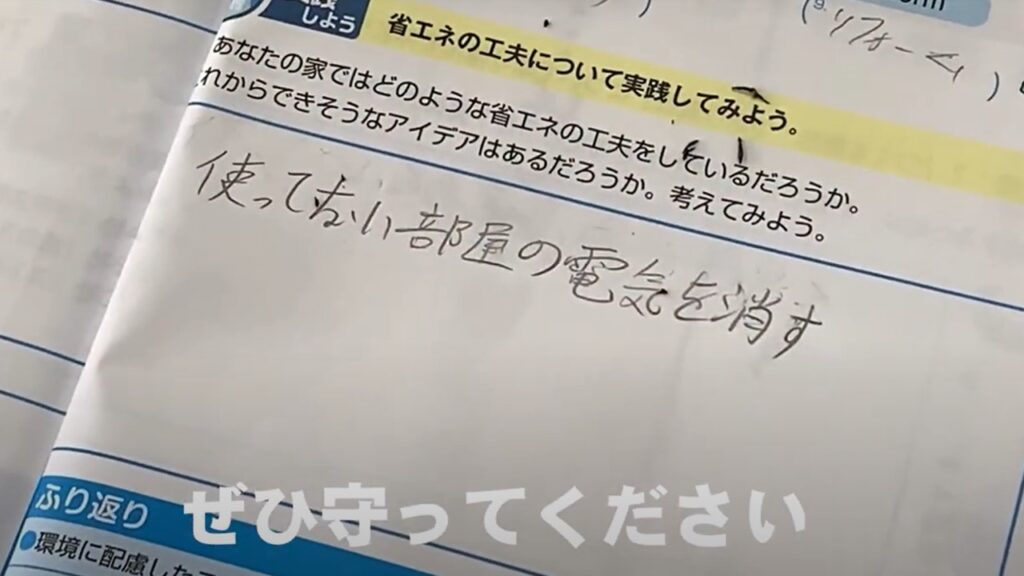 しよう
省エネの工夫について実践してみよう。
あなたの家ではどのような省エネの工夫をしているだろうか。
れからできそうなアイデアはあるだろうか。考えてみよう。
使ってない部屋の電気を消す
ふり返り
●環境に配慮した
ぜひ守ってください